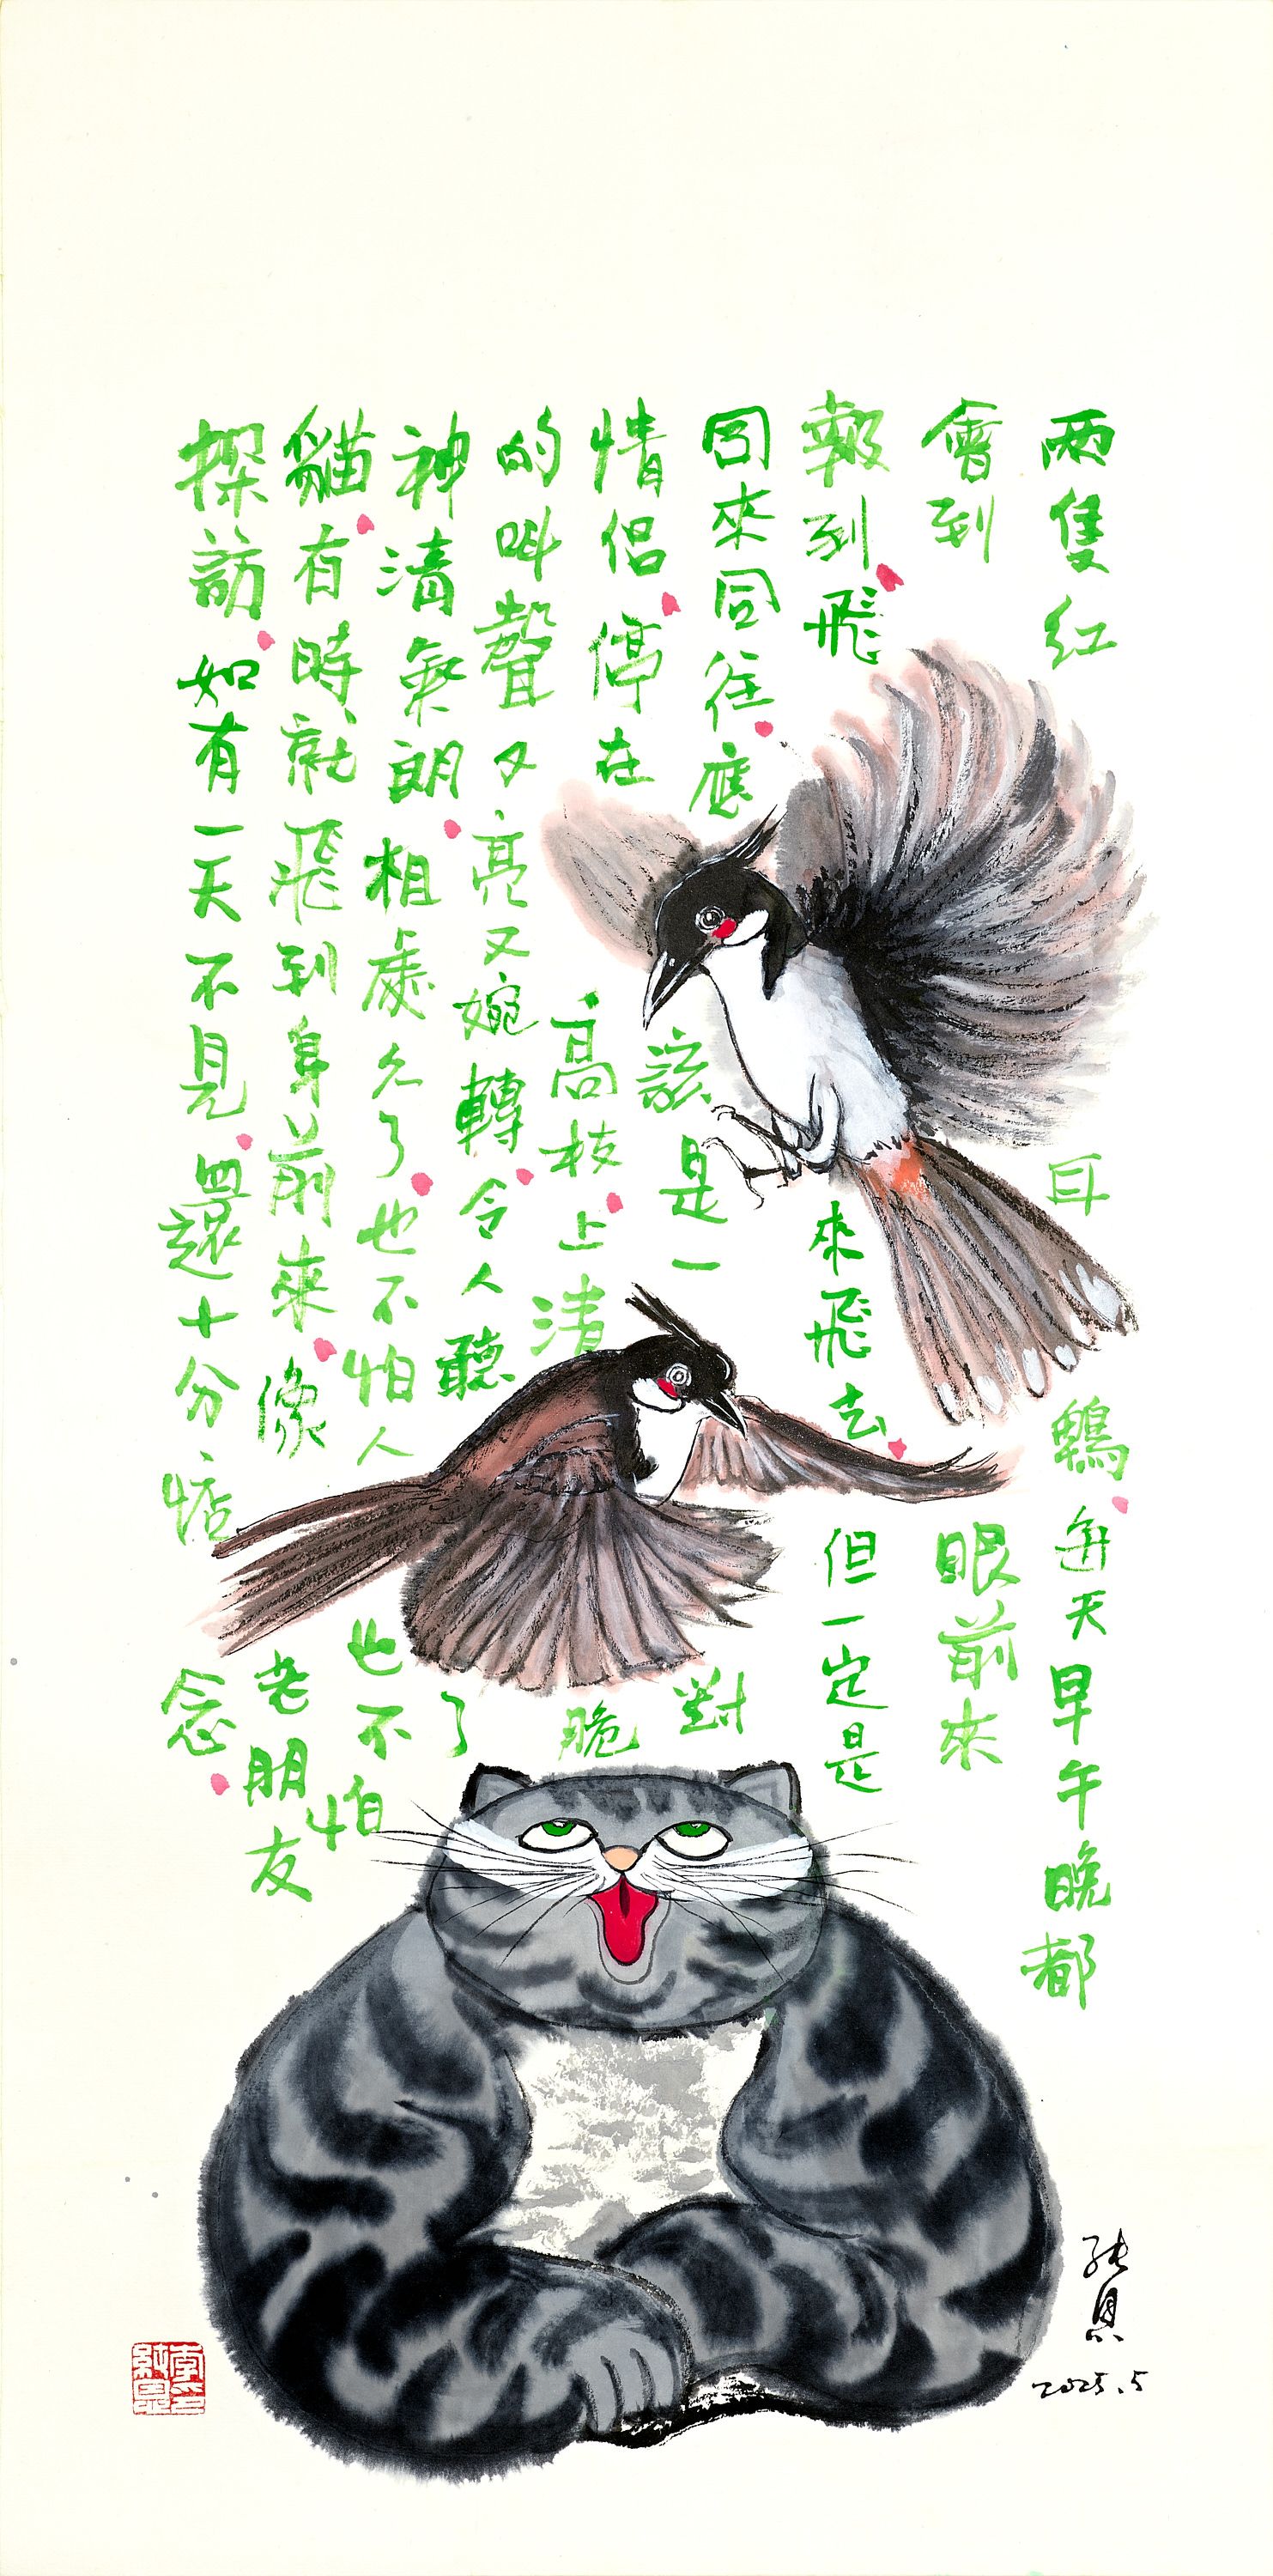 两隻紅耳鵯、每天早午晚都
會到眼前來
報到、飛來飛去、但一定是
同來同往、應該是一對
情侶、停在高枝上、清脆
的叫聲又亮又婉轉、令人聽了
神清氣朗、相處久了、也不怕人也不怕
貓、有時就飛到身前來、像老朋友
探訪、如有一天不見、還十分惦念、
純恩
2025.5
李印純恩